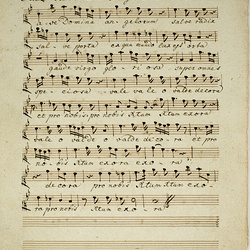 ve Domina angelorum salve radix
salve porta ex qua mundo lux est orta
gaude virgo gloriosa super omnes
speciosa vale vale o valde decora
et pro nobis pro nobis Xtum exora
vale o valde valde decora et pro
nobis Xtum exora exora
decora pro nobis Xtum Xtum exo
ra pro nobis Xtum exora